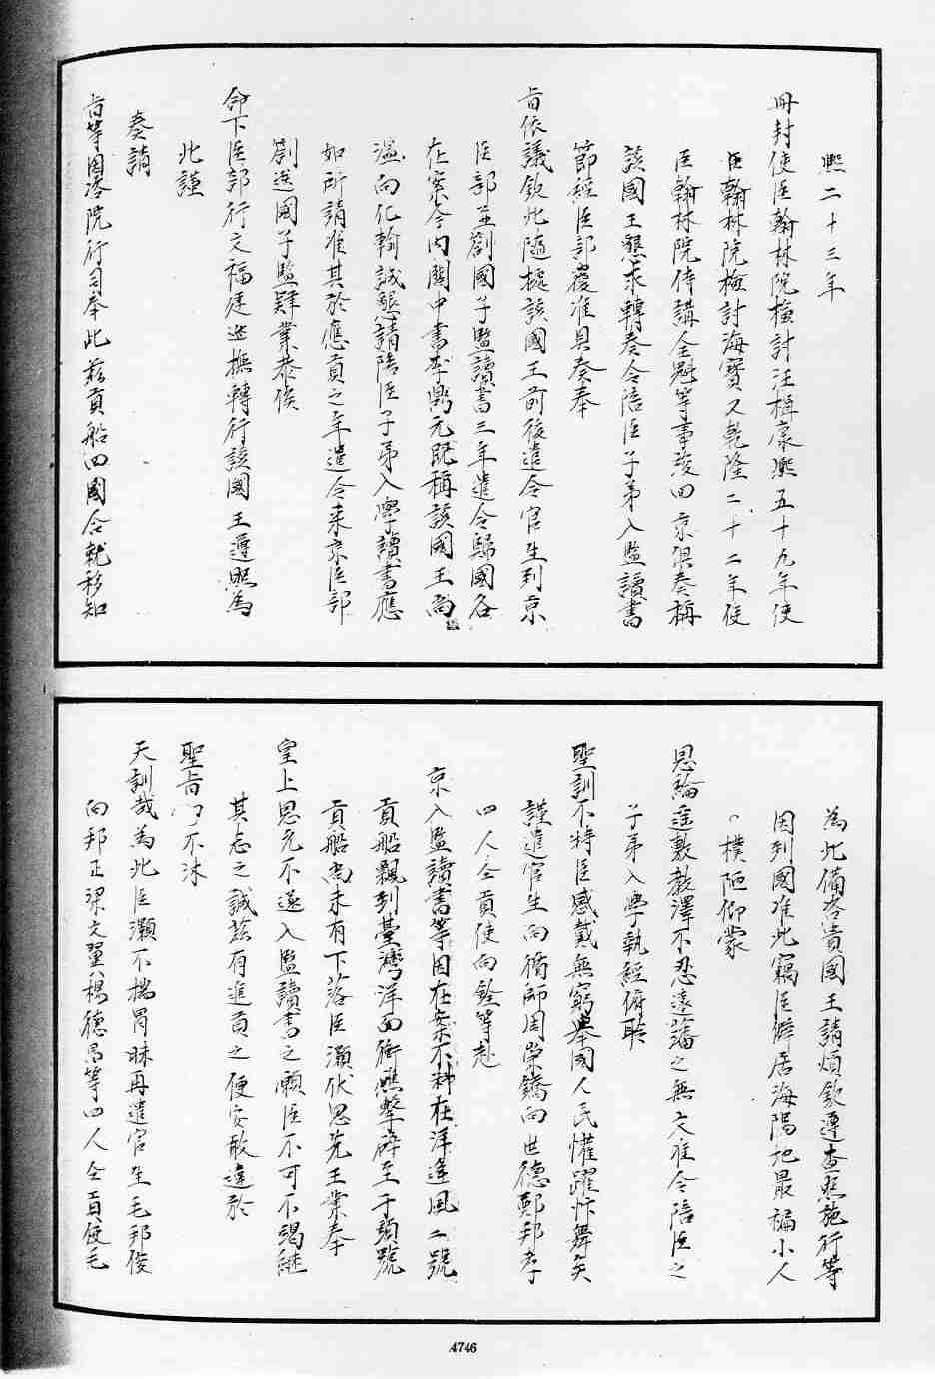 熙二十三年
冊封使臣翰林院檢討汪楫康熙五十九年使
臣翰林院檢討海寶又乾隆二十二年使
臣翰林院侍講全魁等事竣回京俱奏稱
該國王懇求轉奏令陪臣子弟入監讀書
節經臣部覆准具奏奉
旨依議欽此隨據該國王前後遣令官生到京
臣部並劄國子監讀書三年遣令歸國各
在案今內閣中書李鼎元既稱該國王尚
溫向化輸誠懇請陪臣子弟入學讀書應
如所請准其於應貢之年遣令來京臣部
劄送國子監肄業恭俟
命下臣部行文福建巡撫轉行該國王遵照為
此謹
奏請
旨等因咨院行司奉此茲貢船回國合就移知
為此備咨貴國王請煩欽遵查照施行等
因到國准此竊臣僻居海隅地最褊小人
樸陋仰蒙
恩綸遙敷教澤不忍遠藩之無文准令陪臣之
子弟入學執經俯聆
聖訓不特臣感戴無窮舉國人民懽躍忭舞矣
謹遣官生向循師周崇鐈向世德鄭邦孝
四人仝貢使向銓等赴
京入監讀書等因在案不料在洋逢風二號
貢船飄到臺灣洋面衝礁擊碎至于頭號
貢船尚未有下落臣灝伏思先王業奉
皇上恩允不遂入監讀書之願臣不可不竭繼
其志之誠茲有進貢之便安敢違於
聖旨 不沐
天訓哉為此臣灝不揣冒昧再遣官生毛邦俊
向邦正梁文翼楊德昌等四人仝貢使毛
4746